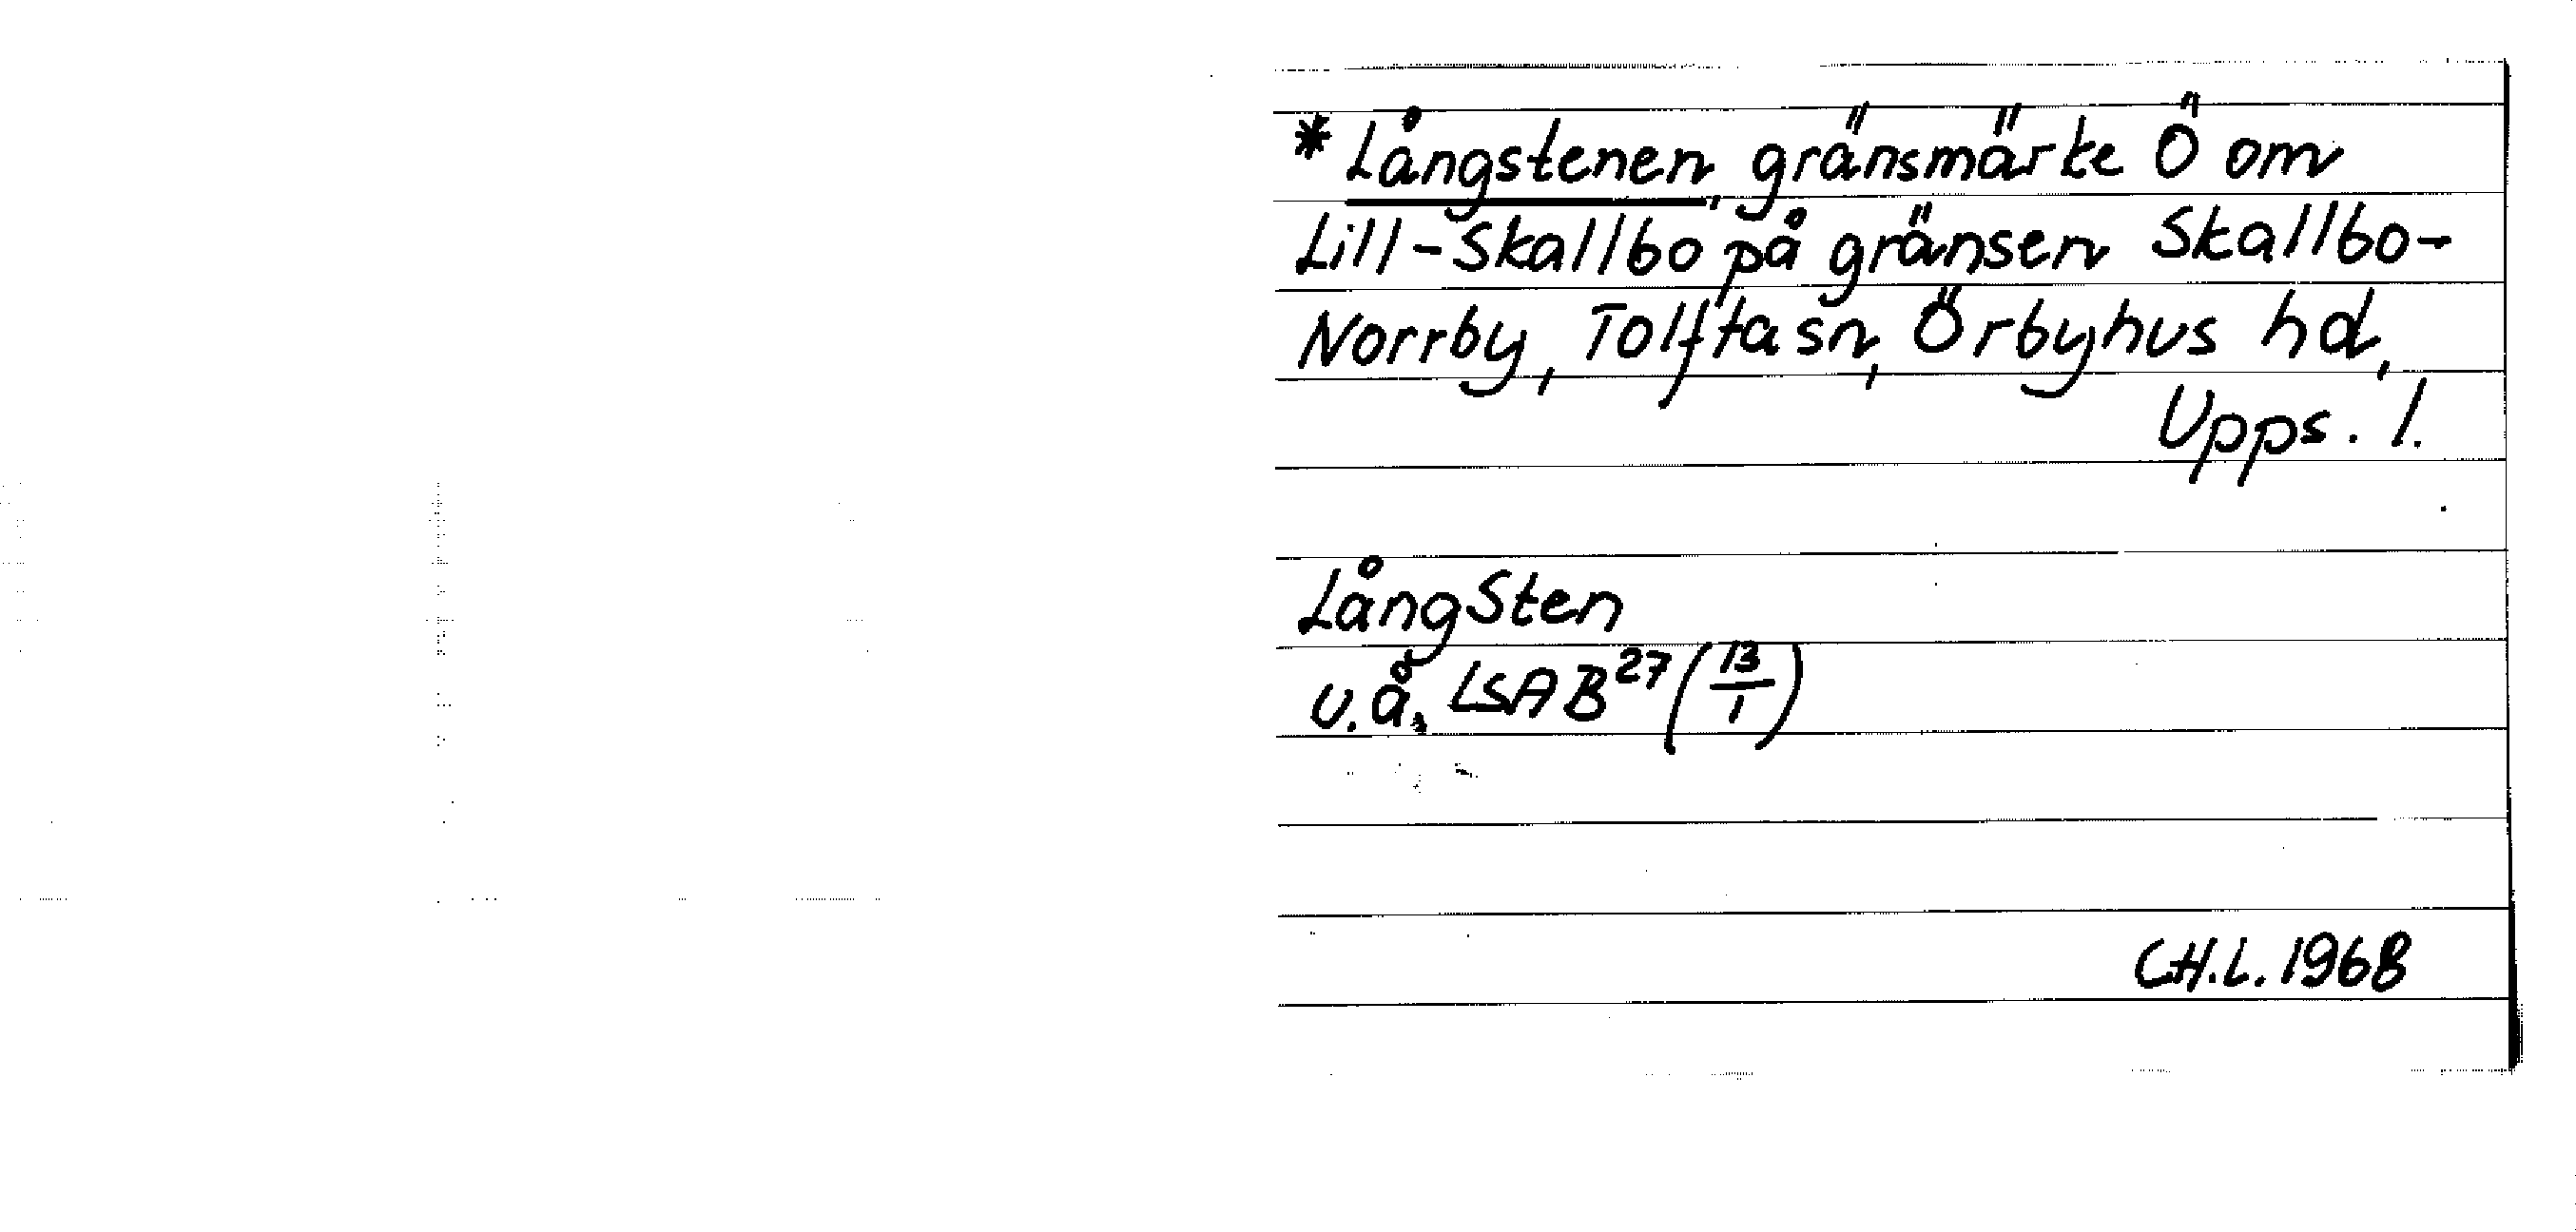 * Långstenen, gränsmärke Ö om
Lill-Skallbo på gränsen Skallbo-
Norrby, Tolfta sn, Örbyhus hd,
Upps. l.
LångSten
u.å. LSA B²⁷ (13/1)
CH.L. 1968